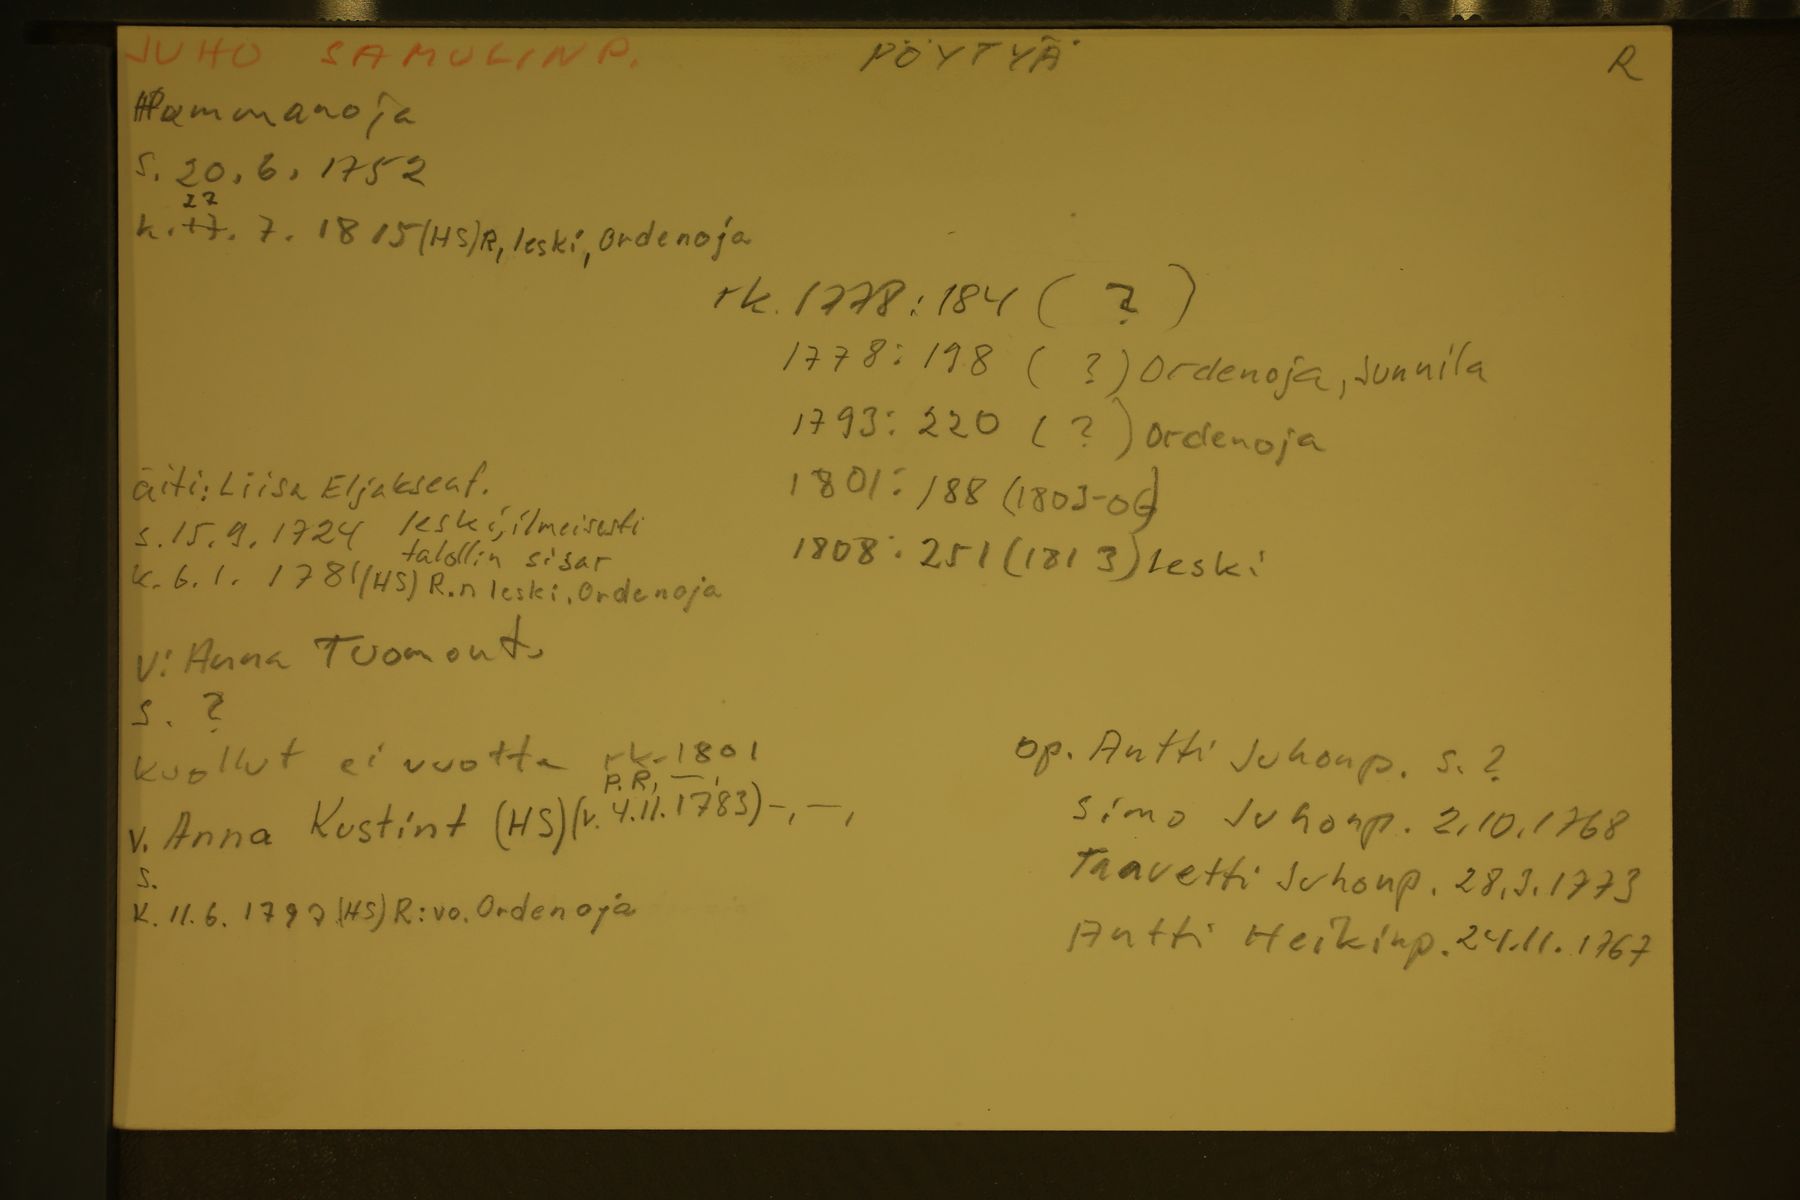 JUHO SAMULINP. PÖYTYÄ R
Hammanoja
s. 20.6. 1752
27
k. 17. 7. 1815 (HS) R, leski, Ordenoja
rk. 1778: 184 ( ? )
1778: 198 ( ? ) Ordenoja, Junnila
1793: 220 ( ? ) Ordenoja
1801: 188 (1803-06)
1808: 251 (1813) leski
äiti: Liisa Eljakseat.
s. 15.9. 1724 leski, ilmeisesti
talollin sisar
k. 6.1. 1781 (HS) R.n leski. Ordenoja
V: Anna Tuomont.
s. ?
kuollut ei vuotta rk. 1801
P.R, —,
v. Anna Kustint (HS) (v. 4.11.1783) -, —,
s.
k. 11.6. 1797 (HS) R: vo. Ordenoja
op. Antti Juhonp. s. ?
Simo Juhonp. 2.10.1768
Taavetti Juhonp. 28.3.1773
Antti Heikinp. 24.11.1767